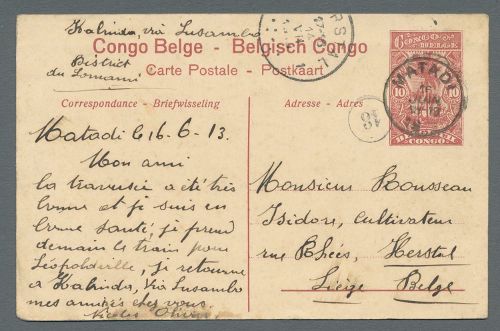 Kabinda, via Lusambo
District
du Lomami
Congo Belge - Belgisch Congo
Carte Postale - Postkaart
Correspondance - Briefwisseling
Adresse - Adres
CONGO BELGE
10 10
BELGISCH CONGO
MATADI
HERSTAL
18
Matadi le 16-6-13.
Mon ami
la traversée a été très
bonne et je suis en
bonne santé; je prend
demain le train pour
Léopoldville, je retourne
à Kabinda, via Lusambo
mes amitiés chez vous.
Nicolas
Monsieur Rousseau
Isidore, Cultivateur
rue Rhées, Herstal
Liège Belge